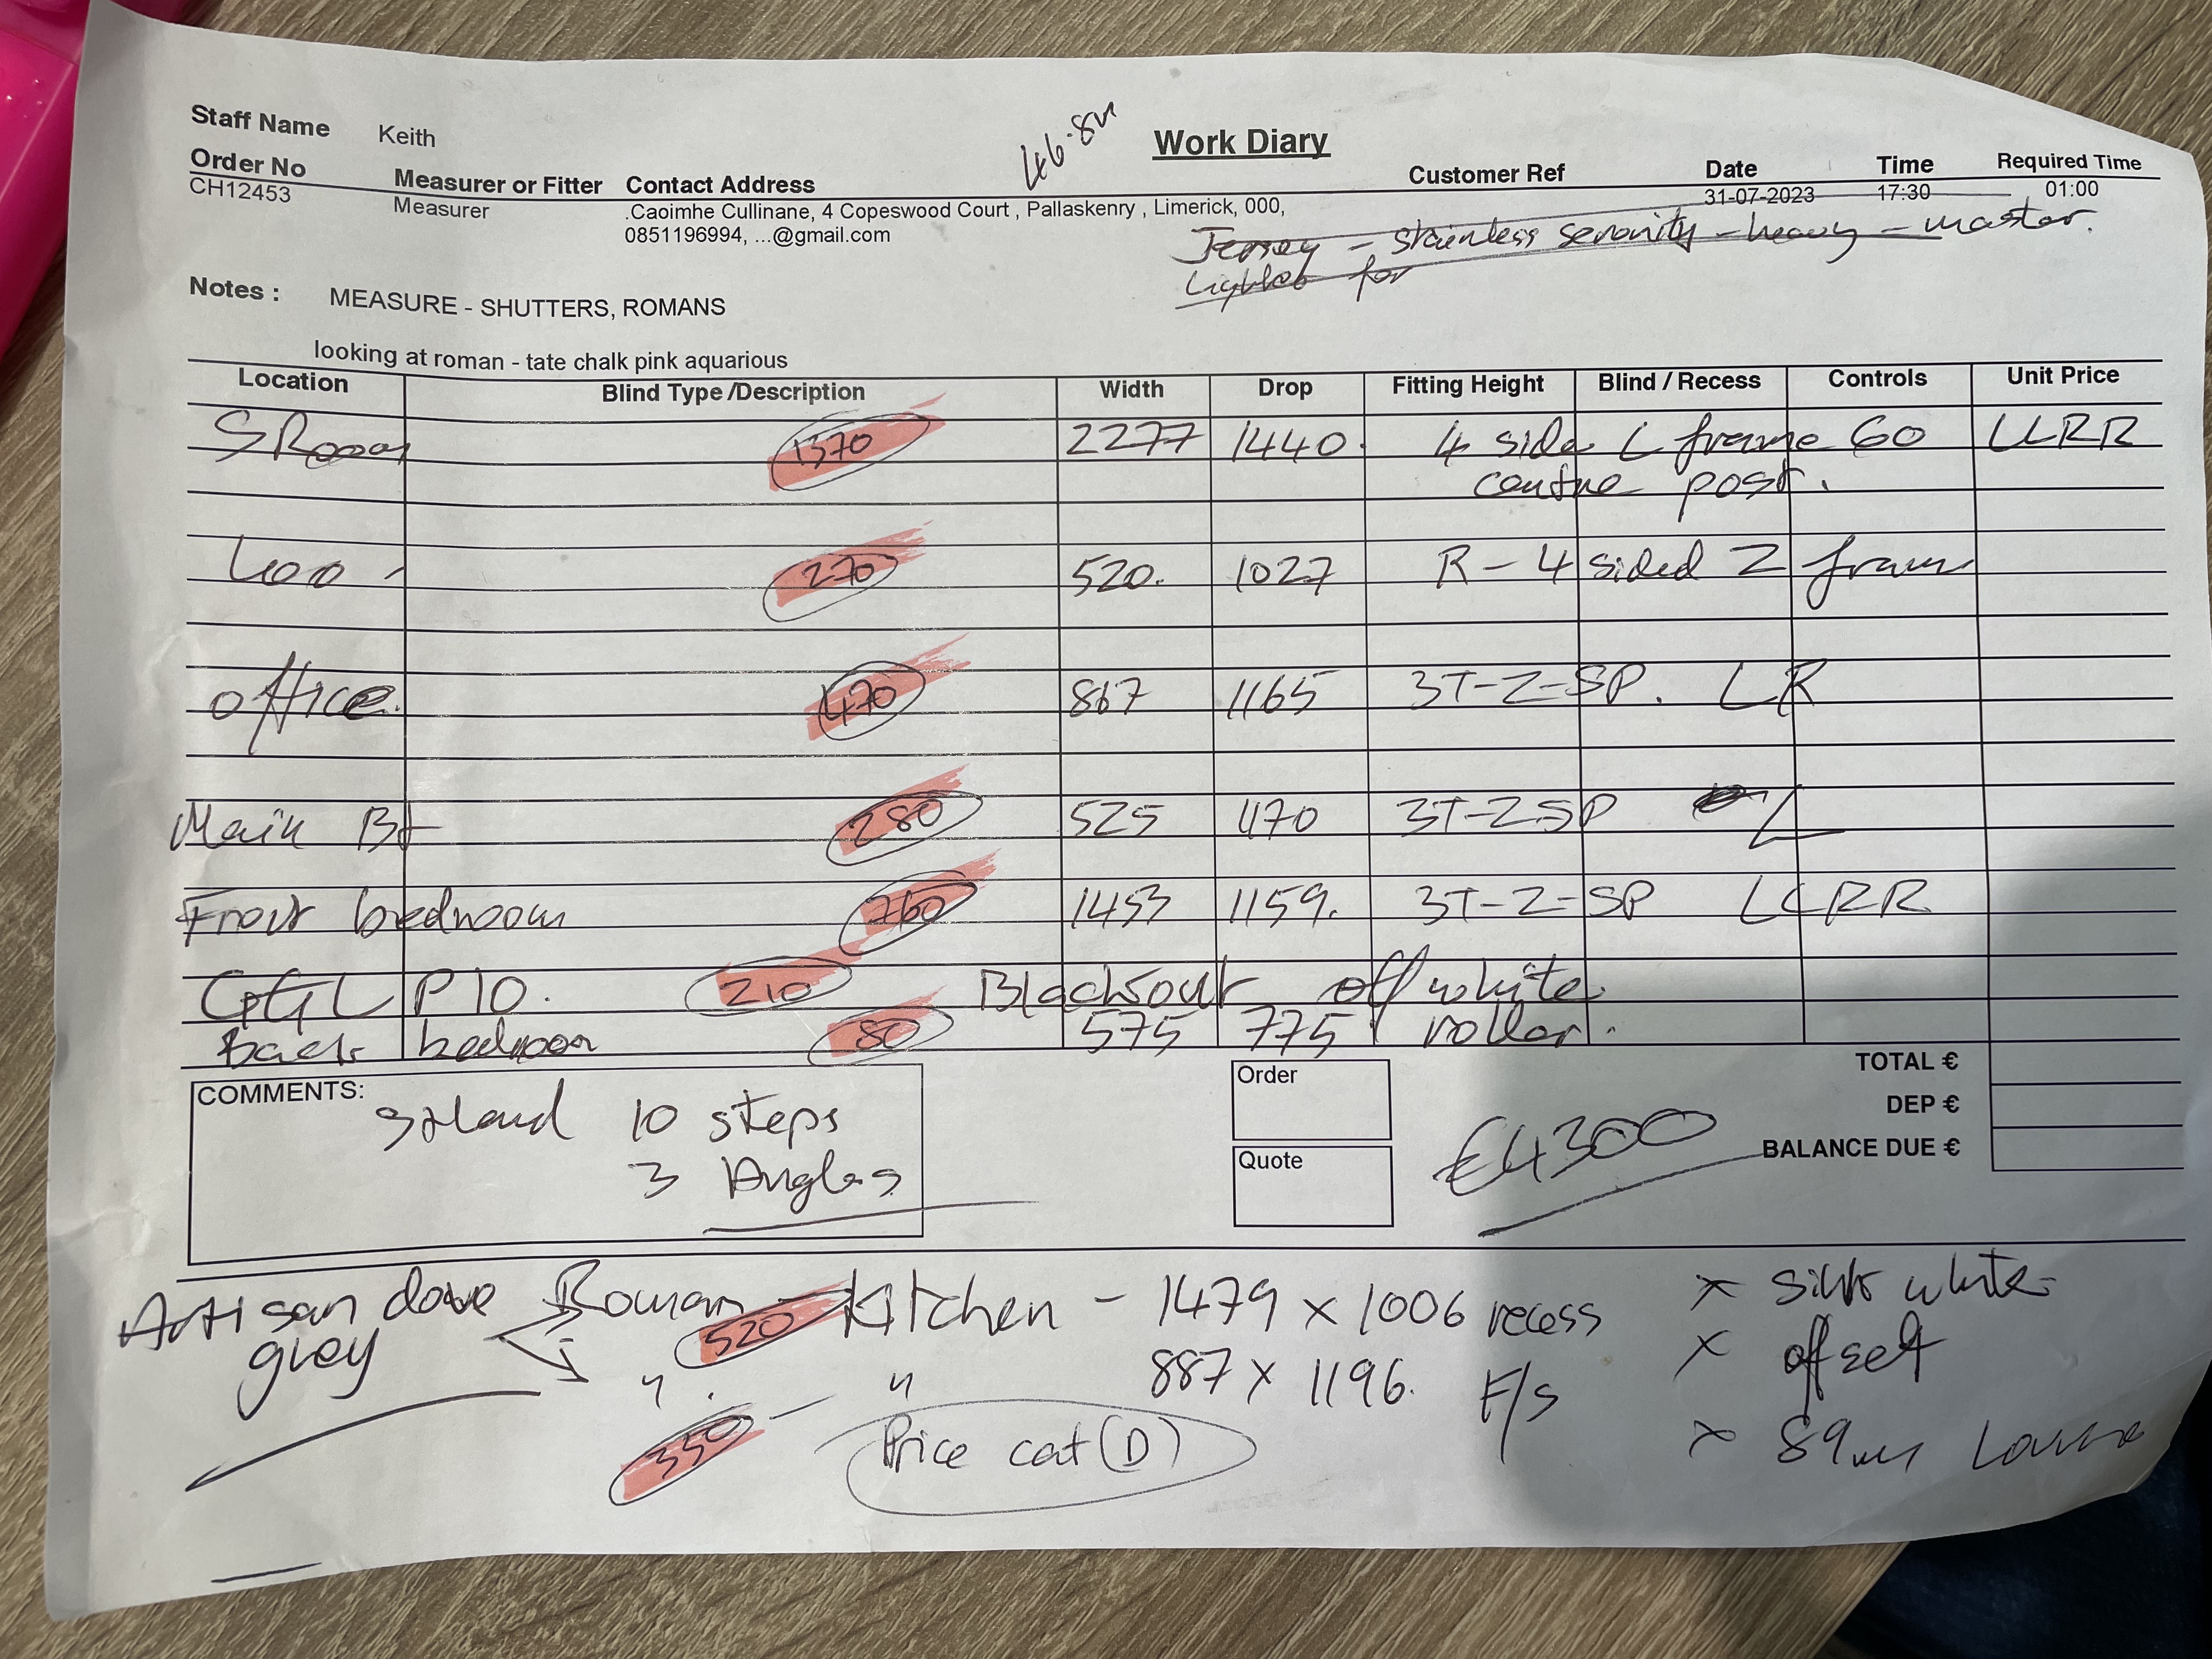 46.8m
Work Diary
Staff Name Keith
Order No Measurer or Fitter Contact Address Customer Ref Date Time Required Time
CH12453 Measurer .Caoimhe Cullinane, 4 Copeswood Court , Pallaskenry , Limerick, 000, 31-07-2023 17:30 01:00
0851196994, ...@gmail.com
Jersey - stainless serenity - heavy - master.
for
Notes : MEASURE - SHUTTERS, ROMANS
looking at roman - tate chalk pink aquarious
Location Blind Type /Description Width Drop Fitting Height Blind / Recess Controls Unit Price
SRoom 1370 2277 1440. 4 side L frame 60 LLRR
centre post.
Loo - 270 520. 1027 R - 4 sided Z frame
office. 470 867 1165 3T-Z-SP. LR
Main B 280 525 1170 3T-Z-SP L
Front bedroom 760 1453 1159. 3T-Z-SP LLRR
GGL P10. 210 Blackout off white
Back bedroom 80 575 775 roller.
COMMENTS: 10 steps
3 Angles
Order
Quote
€4300
TOTAL €
DEP €
BALANCE DUE €
Artisan dove grey Roman - Kitchen - 1479 x 1006 recess
520
" . - " 887 x 1196. F/s
350
Price cat (D)
x silk white
x offset
x 89m Louvre